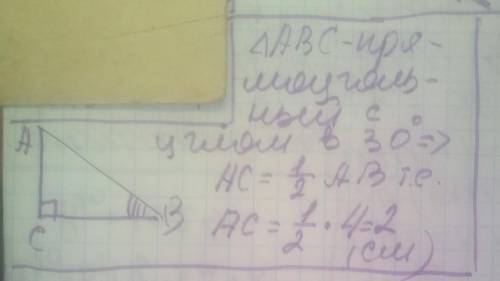 △ABC-пря-
моуголь-
ный с
углом в 30°=>
AC = 1/2 AB т.е.
AC = 1/2 · 4=2
(см)
A
C
B